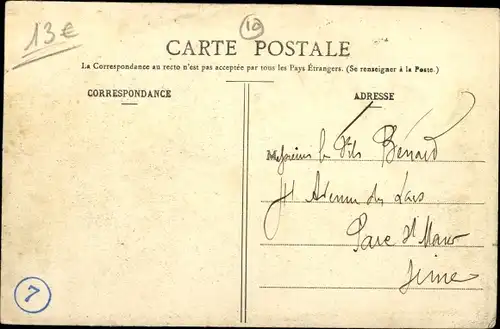 13€
10
CARTE POSTALE
La Correspondance au recto n'est pas acceptée par tous les Pays Étrangers. (Se renseigner à la Poste.)
CORRESPONDANCE
ADRESSE
Bénard
Avenue des
Parc St Maur
Seine
7